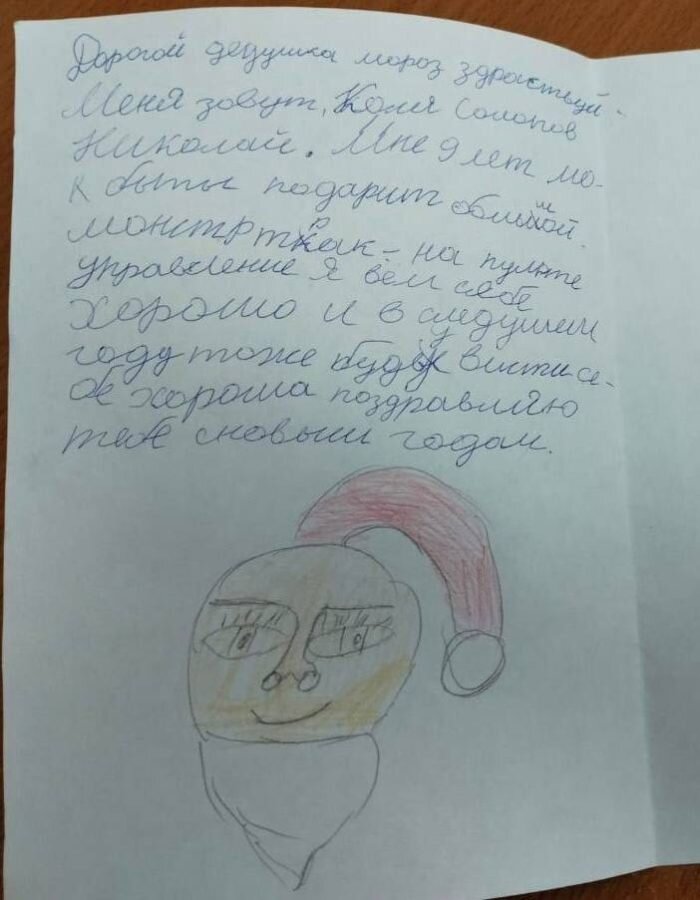 Дорогой дедушка мороз здраствуй
Меня зовут, Коля Солопов
Николай. Мне 9 лет мо-
к бы ты подарит
монстр трак - на пульте
управление я вём себе
хорошо и в следушем
году тоже буду висти се-
бе хороша поздравляю
тебе сновым годам.